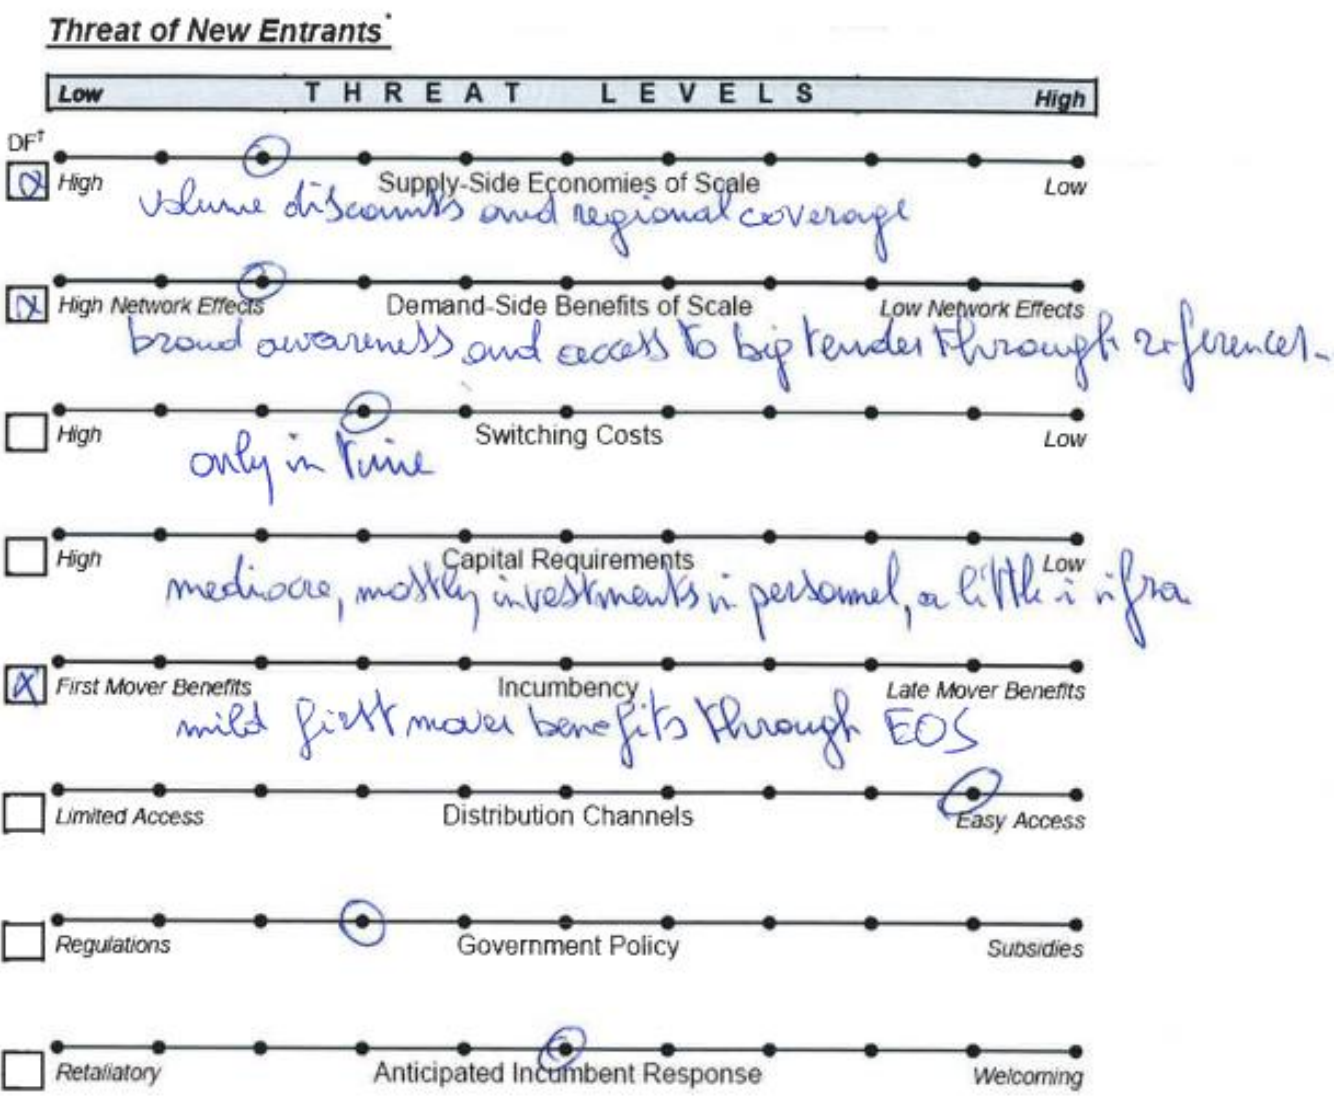 Threat of New Entrants*
Low THREAT LEVELS High
DF†
High Supply-Side Economies of Scale Low
volume discounts and regional coverage
High Network Effects Demand-Side Benefits of Scale Low Network Effects
brand awareness and access to big tender through references.
High Switching Costs Low
only in time
High Capital Requirements Low
mediocre, mostly investments in personnel, a little i infra
First Mover Benefits Incumbency Late Mover Benefits
mild first mover benefits through EOS
Limited Access Distribution Channels Easy Access
Regulations Government Policy Subsidies
Retaliatory Anticipated Incumbent Response Welcoming